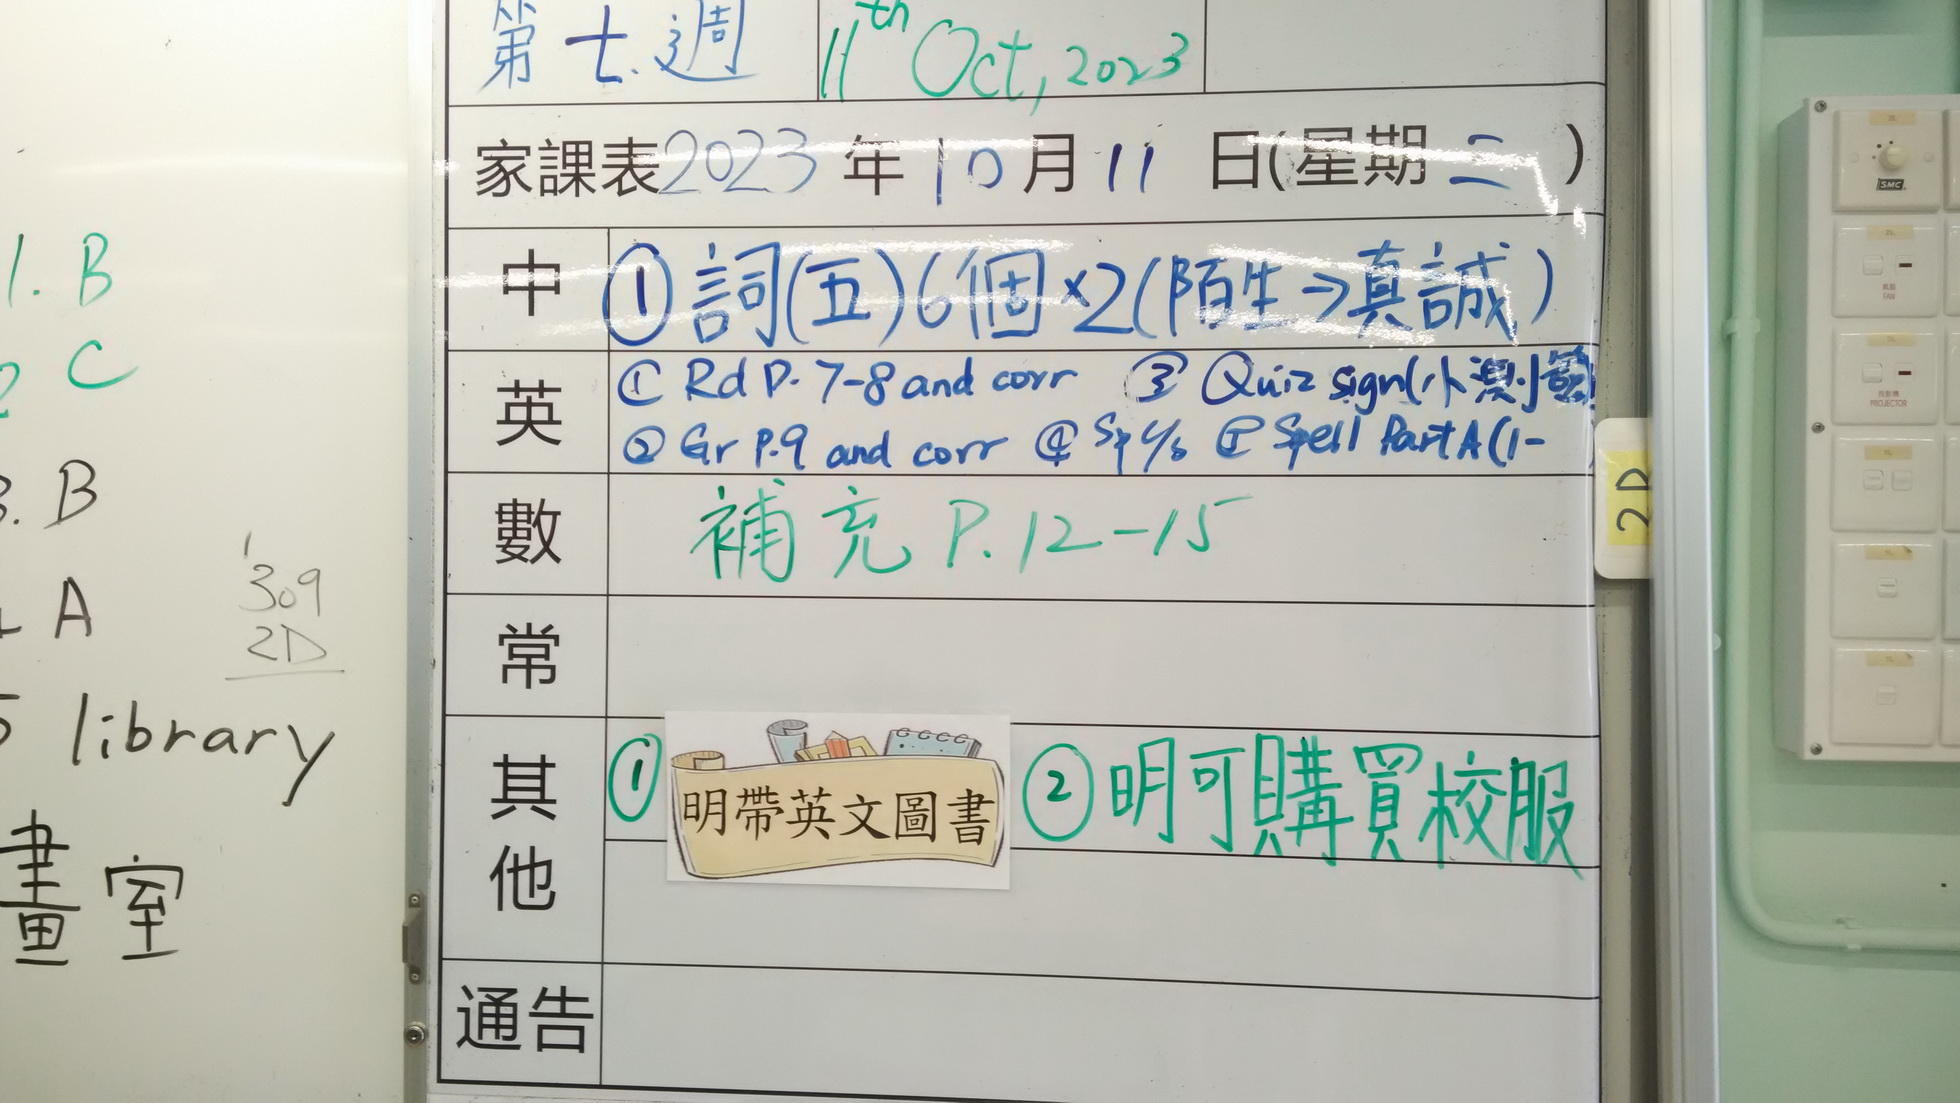 第七週
11th Oct, 2023
家課表2023年10月11日(星期三)
中
①詞(五)6個×2(陌生→真誠)
英
① Rd P. 7-8 and corr ③ Quiz sign(小測小
② Gr P.9 and corr ④ Sp ⑤ Spell Part A(1-
數
補充 P.12-15
常
其他
①
明帶英文圖書
②明可購買校服
通告
1. B
2 C
3. B
A
5 library
畫室
309
2D
2D
SMC
FAN
PROJECTOR